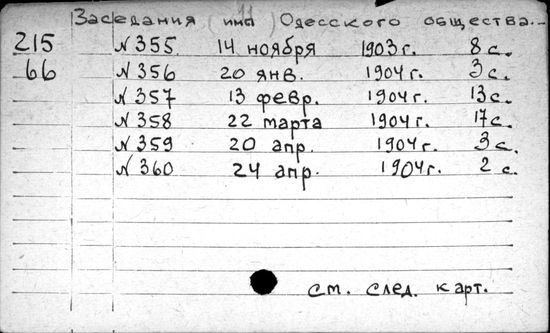 Заседания Одесского общества.
215 N 355 14 ноября 1903 г. 8 с.
66 N 356 20 янв. 1904 г. 3 с.
N 357 13 февр. 1904 г. 13 с.
N 358 22 марта 1904 г. 17 с.
N 359 20 апр. 1904 г. 3 с.
N 360 24 апр. 1904 г. 2 с.
см. след. карт.